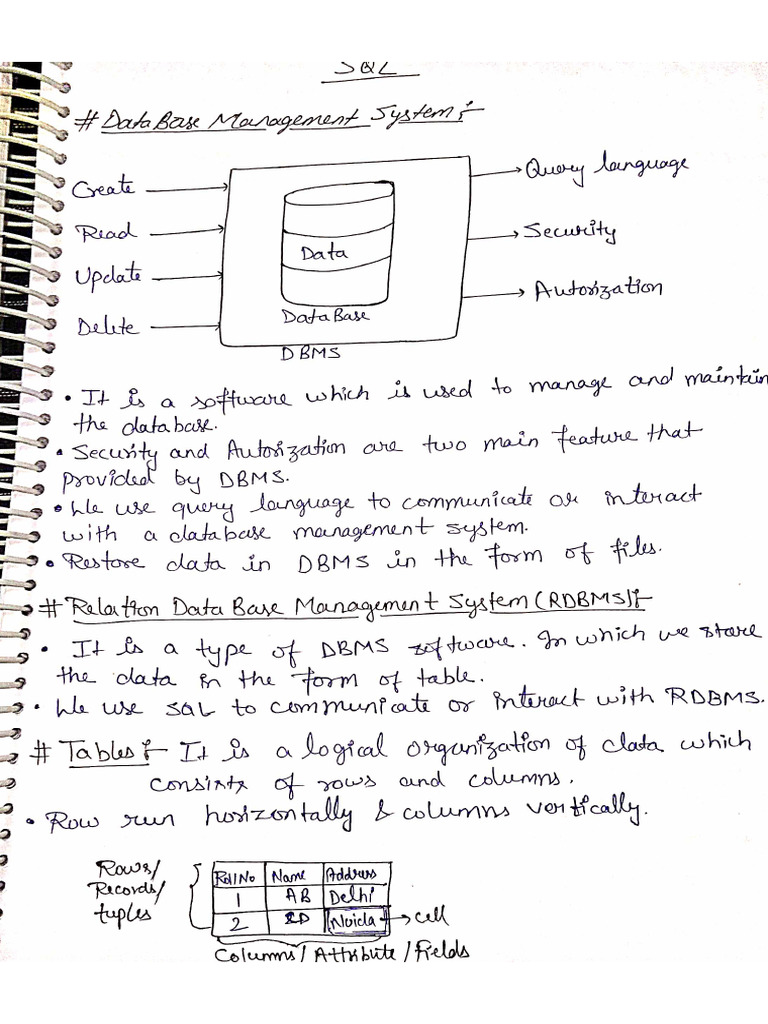 SQL
# DataBase Management System :-
Create
Read
Update
Delete
Data
DataBase
DBMS
Query language
Security
Autorization
• It is a software which is used to manage and maintain
the database.
• Security and Autorization are two main feature that
provided by DBMS.
• We use query language to communicate or interact
with a database management system.
• Restore data in DBMS in the form of files.
# Relation DataBase Management System (RDBMS) :-
• It is a type of DBMS software. In which we store
the data in the form of table.
• We use SQL to communicate or interact with RDBMS.
# Tables :- It is a logical organization of data which
consists of rows and columns.
• Row run horizontally & columns vertically.
Rows/
Records/
tuples
Roll No Name Address
1 AB Delhi
2 Noida → cell
Columns / Attribute / Fields